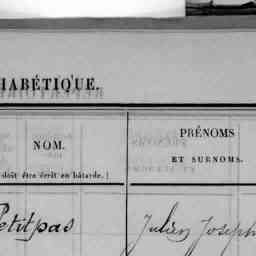 HABÉTIQUE.
NOM.
doit être écrit en bâtarde.)
PRÉNOMS
ET SURNOMS.
Petitpas
Julien Joseph